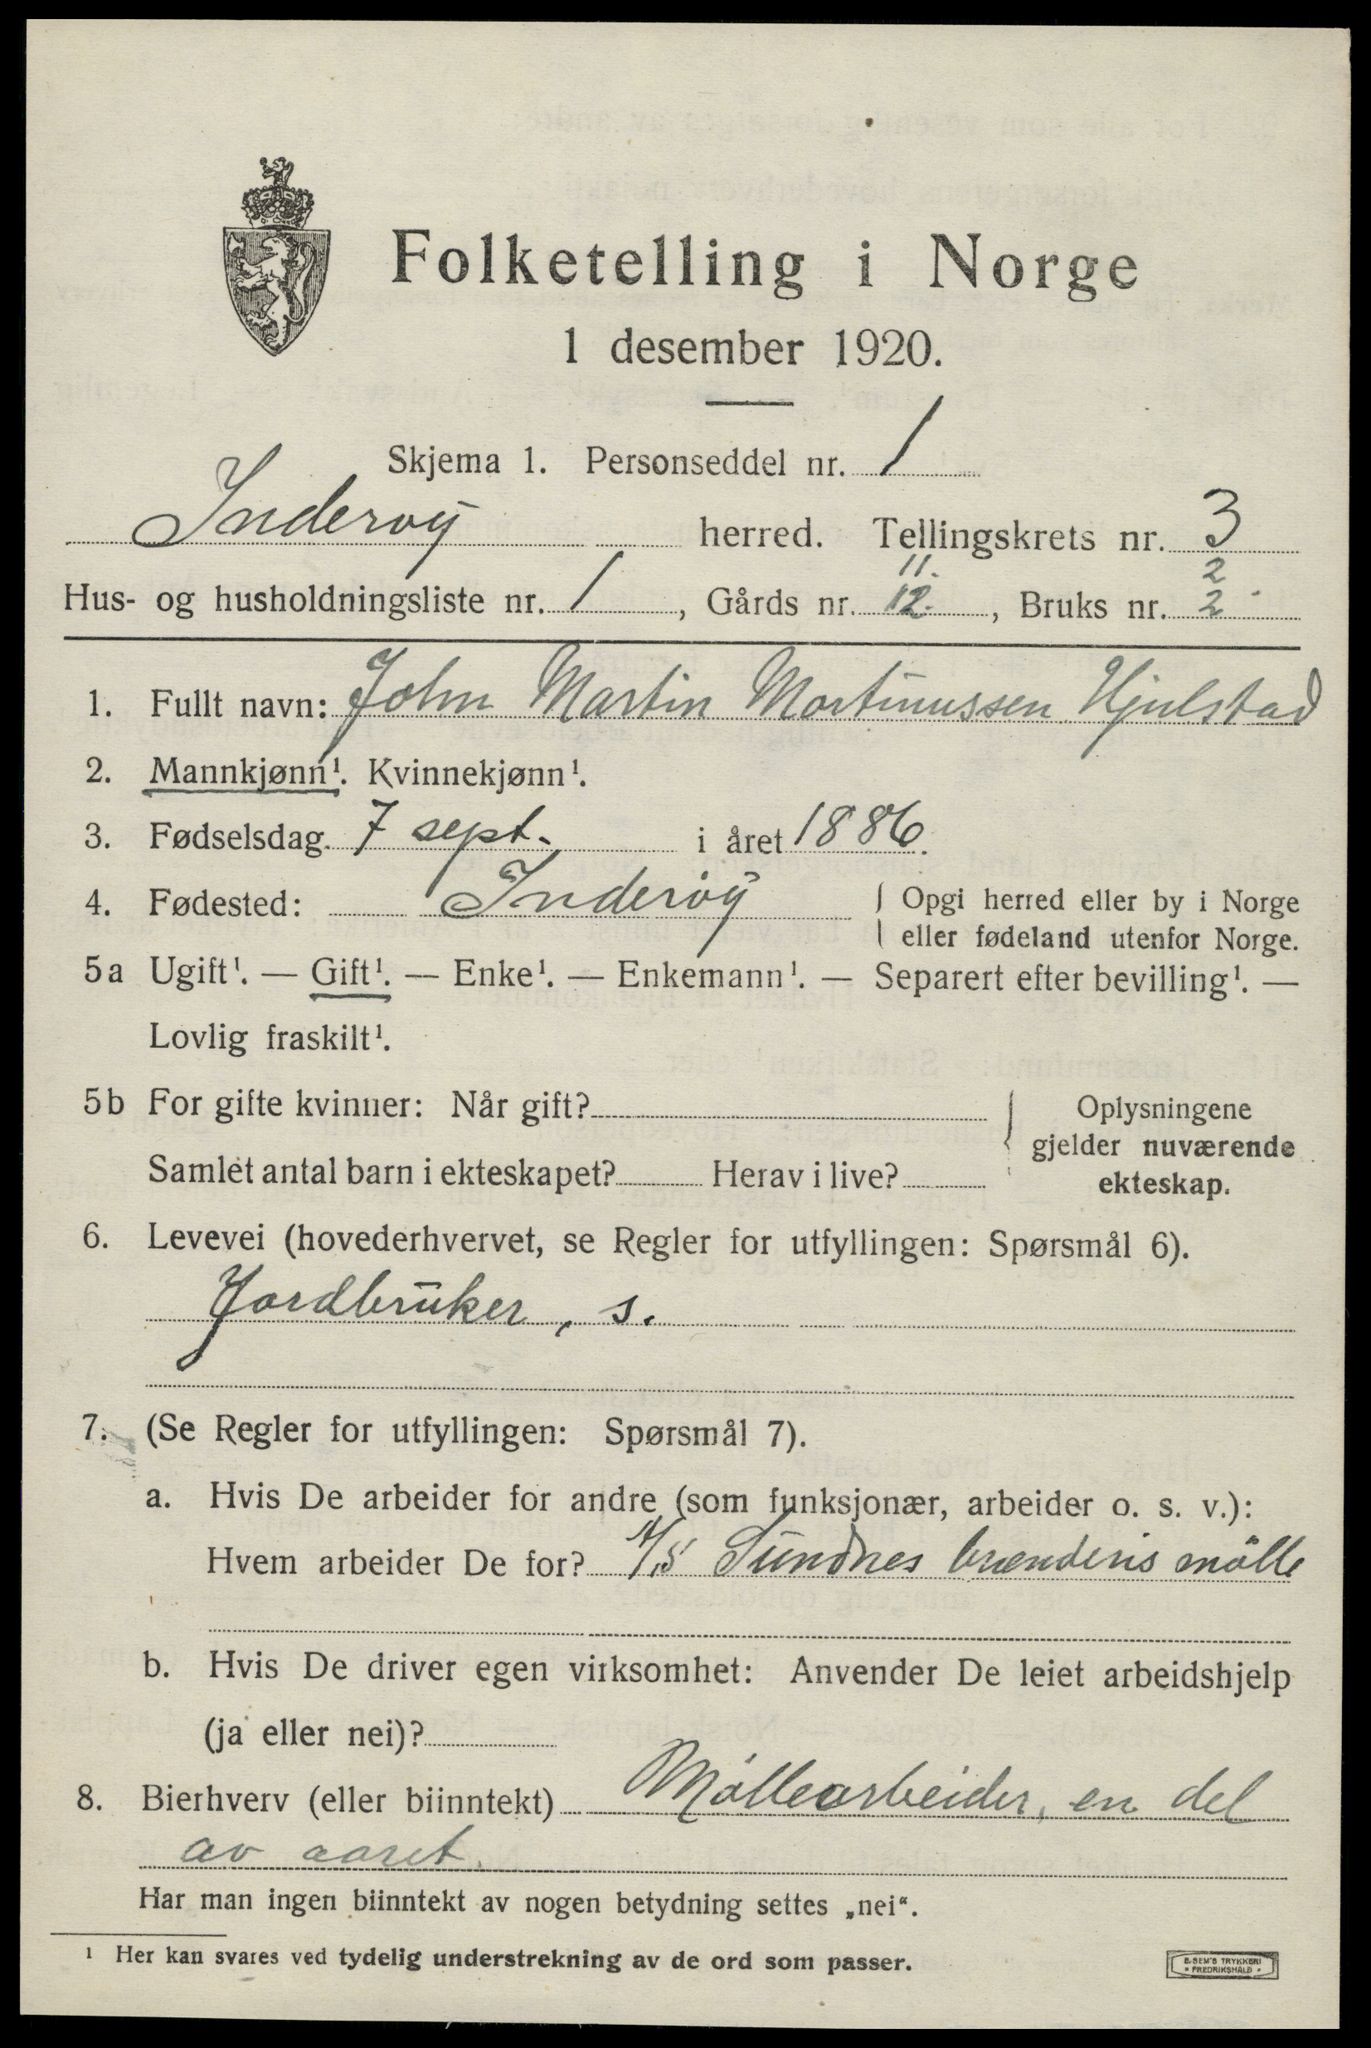 Folketelling i Norge
1 desember 1920.
Skjema 1. Personseddel nr. 1
Inderøy herred. Tellingskrets nr. 3
11. 2
Hus- og husholdningsliste nr. 1, Gårds nr. 12., Bruks nr. 2
1. Fullt navn: John Martin Martinussen Hjulstad
2. Mannkjønn¹. Kvinnekjønn¹.
3. Fødselsdag 7 sept. i året 1886.
4. Fødested: Inderøy { Opgi herred eller by i Norge
eller fødeland utenfor Norge.
5a Ugift¹. — Gift¹. — Enke¹. — Enkemann¹. — Separert efter bevilling¹. —
Lovlig fraskilt¹.
5b For gifte kvinner: Når gift? { Oplysningene
gjelder nuværende
Samlet antal barn i ekteskapet? Herav i live? ekteskap.
6. Levevei (hovederhvervet, se Regler for utfyllingen: Spørsmål 6).
Jordbruker, s.
7. (Se Regler for utfyllingen: Spørsmål 7).
a. Hvis De arbeider for andre (som funksjonær, arbeider o. s. v.):
Hvem arbeider De for? A/S Sundnes brænderis mølle
b. Hvis De driver egen virksomhet: Anvender De leiet arbeidshjelp
(ja eller nei)?
8. Bierhverv (eller biinntekt) Møllearbeider, en del
av aaret.
Har man ingen biinntekt av nogen betydning settes „nei“.
¹ Her kan svares ved tydelig understrekning av de ord som passer.
E. SEM'S TRYKKERI
FREDRIKSHALD